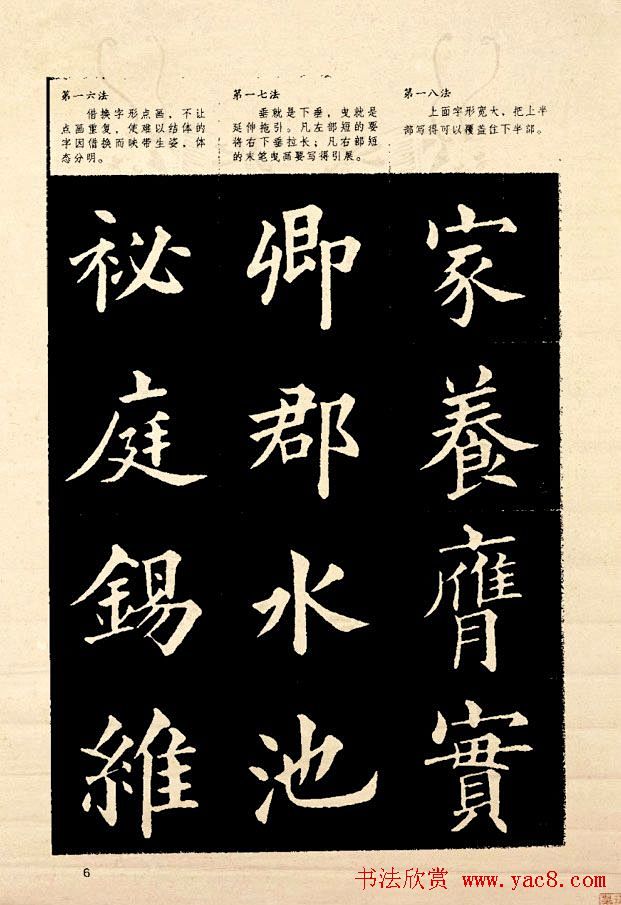 第一六法
借换字形点画，不让
点画重复，使难以结体的
字因借换而映带生姿，体
态分明。
第一七法
垂就是下垂，曳就是
延伸拖引。凡左部短的要
将右下垂拉长；凡右部短
的末笔曳画要写得引展。
第一八法
上面字形宽大，把上半
部写得可以覆盖住下半部。
祕卿家
庭郡養
錫水膺
維池實
6
书法欣赏 www.yac8.com